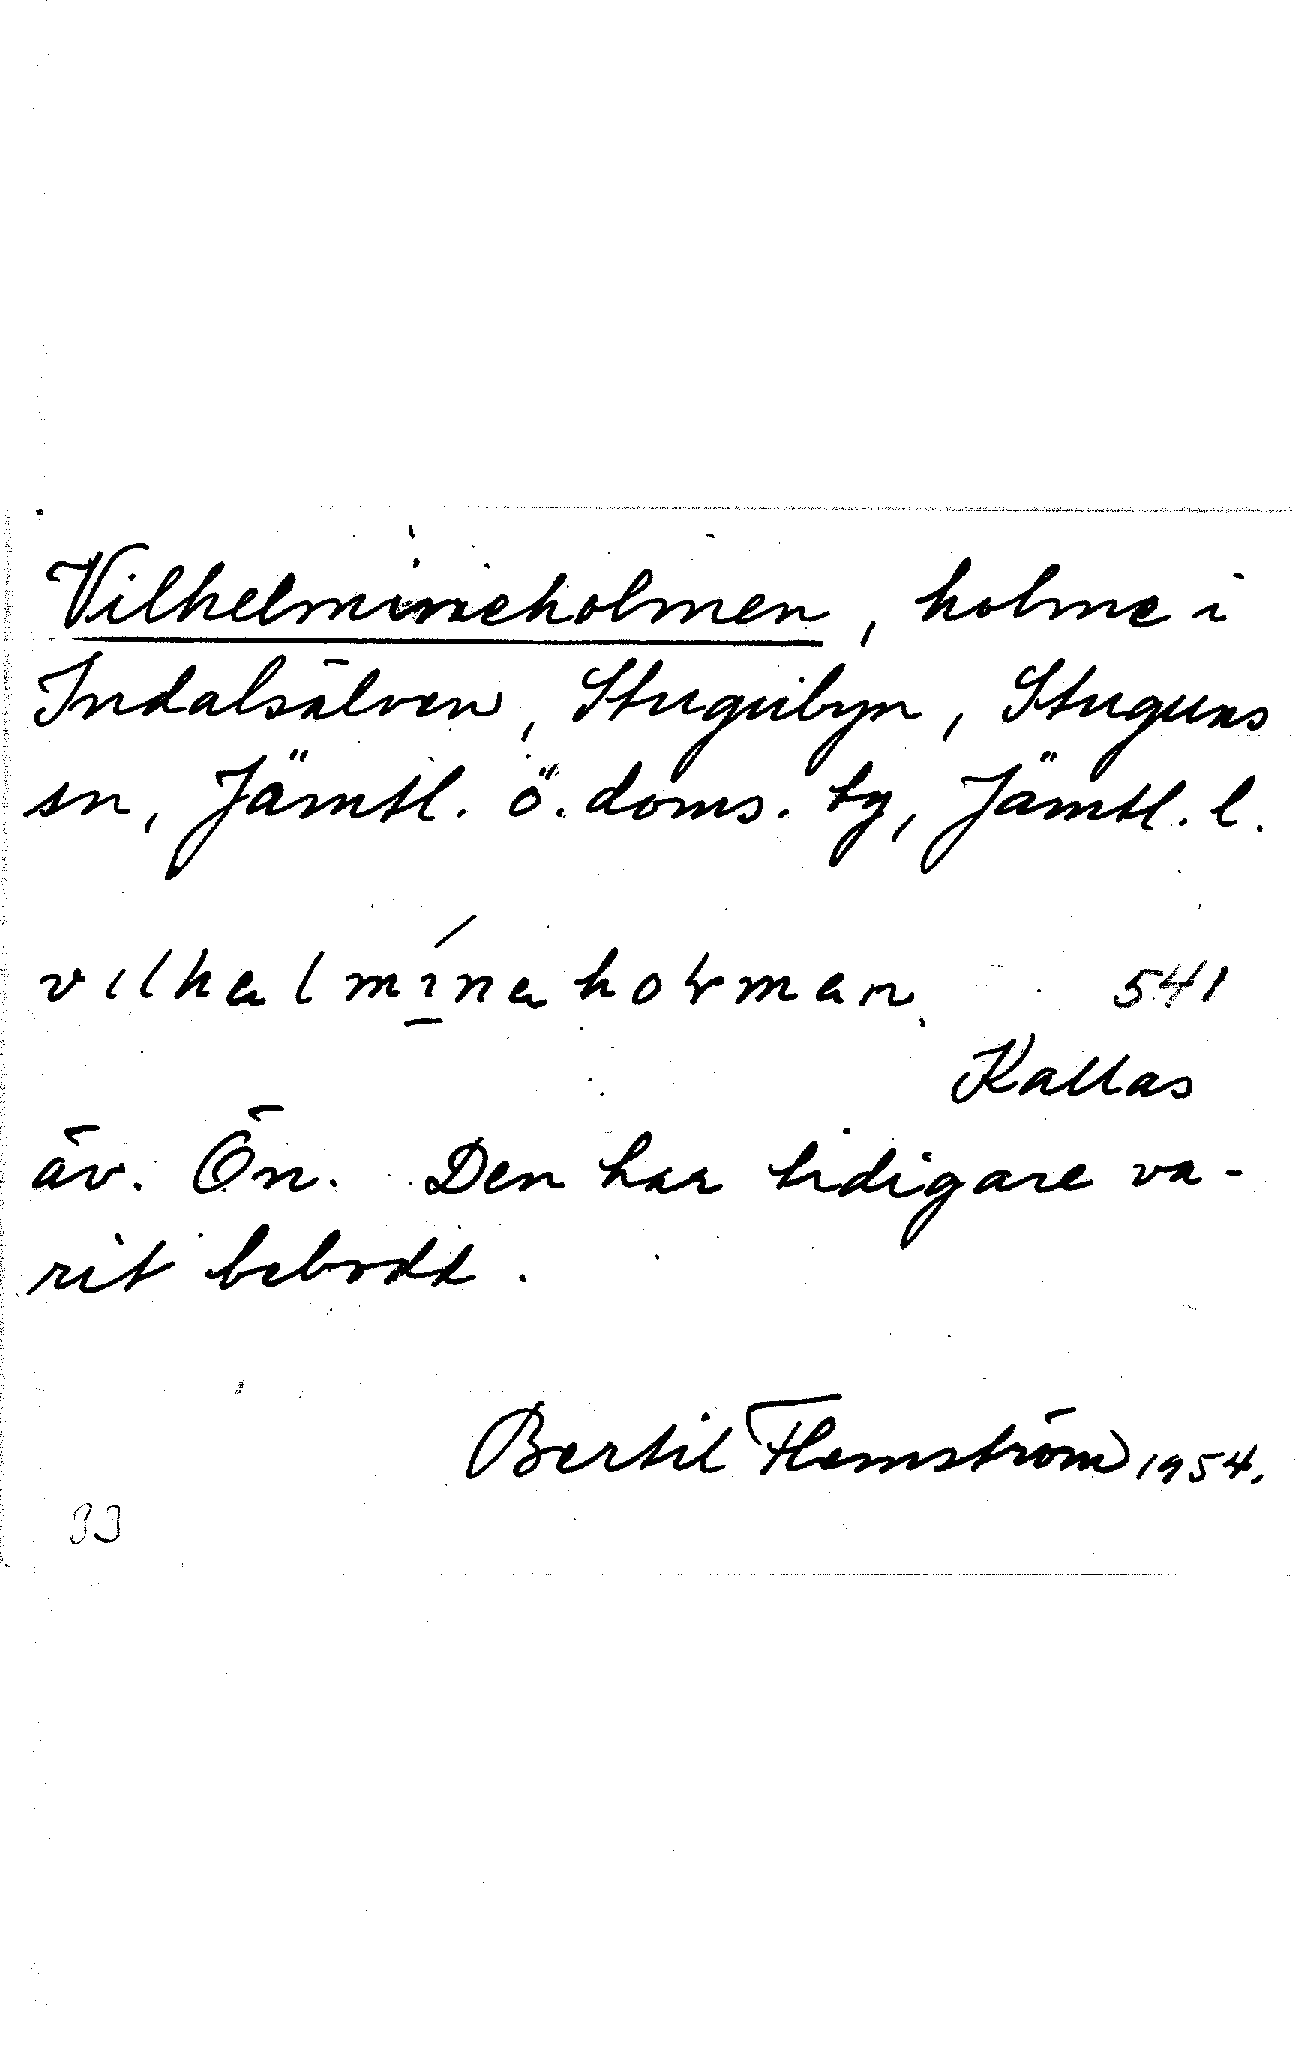 Vilhelmineholmen, holme i
Indalsälven, Stugubyn, Stuguns
sn, Jämtl. ö. doms. tg, Jämtl. l.
vılhalmı́nahoḷman 541
Kallas
äv. Ön. Den har tidigare va-
rit bebodd.
Bertil Flemström 1954.
33